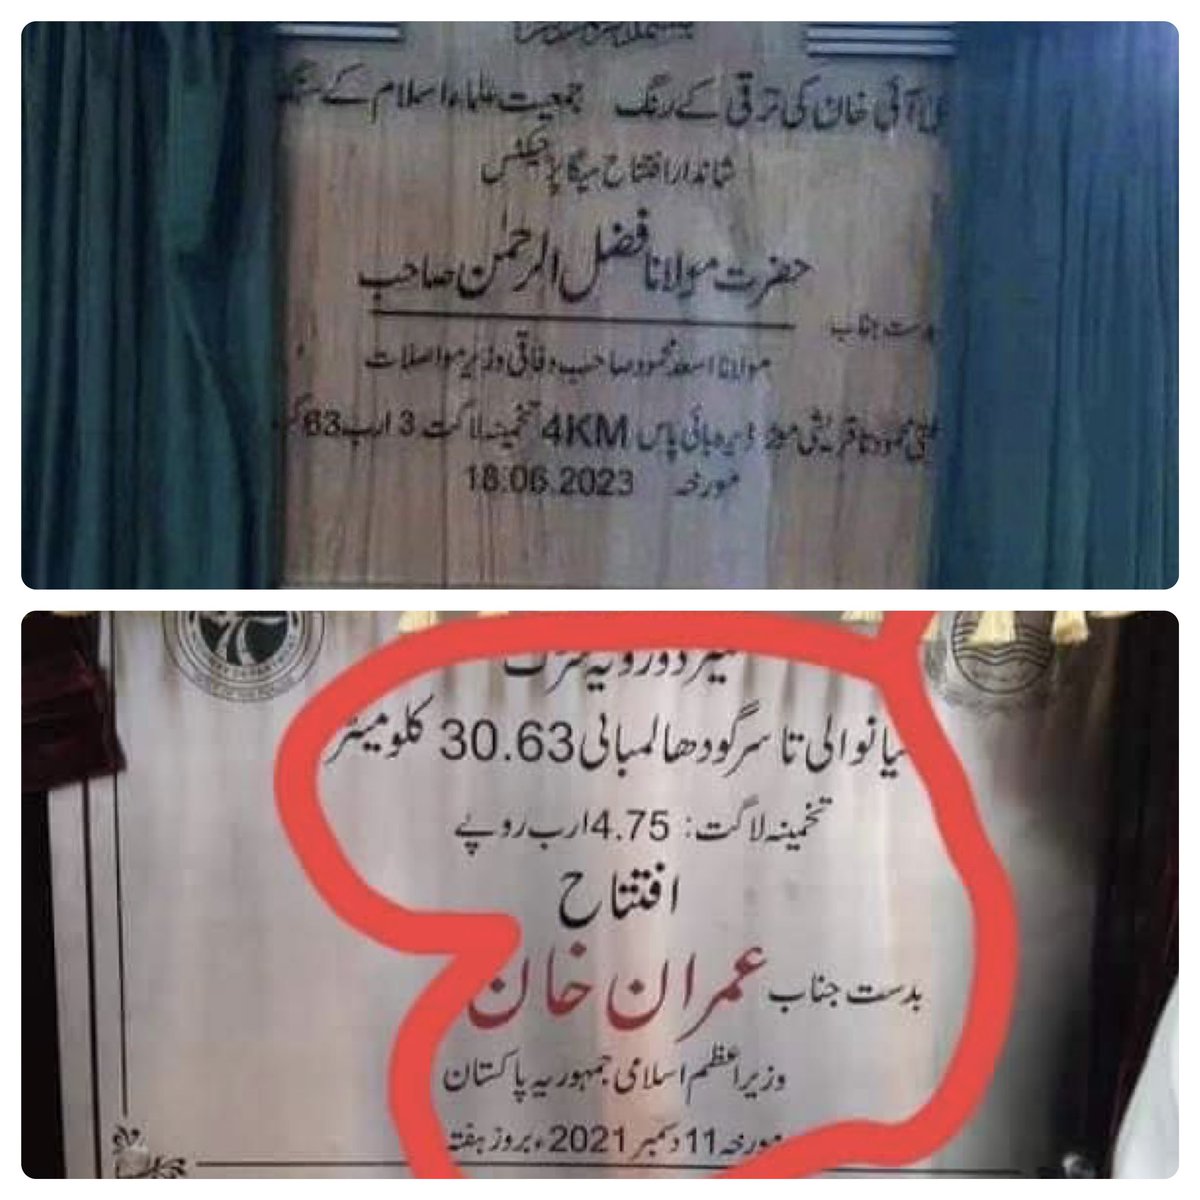 آئی خان کی ترقی کے رنگ جمعیت علماء اسلام کے سنگ
شاندار افتتاح میگا پراجیکٹس
حضرت مولانا فضل الرحمٰن صاحب
بدست جناب
مولانا اسعد محمود صاحب وفاقی وزیر مواصلات
مفتی محمود تا قریشی موڑ ڈیرہ بائی پاس 4KM تخمینہ لاگت 3 ارب 63
مورخہ 18.06.2023
دورویہ سڑک
میانوالی تا سرگودھا لمبائی 30.63 کلومیٹر
تخمینہ لاگت: 4.75 ارب روپے
افتتاح
بدست جناب عمران خان
وزیر اعظم اسلامی جمہوریہ پاکستان
مورخہ 11 دسمبر 2021ء بروز ہفتہ